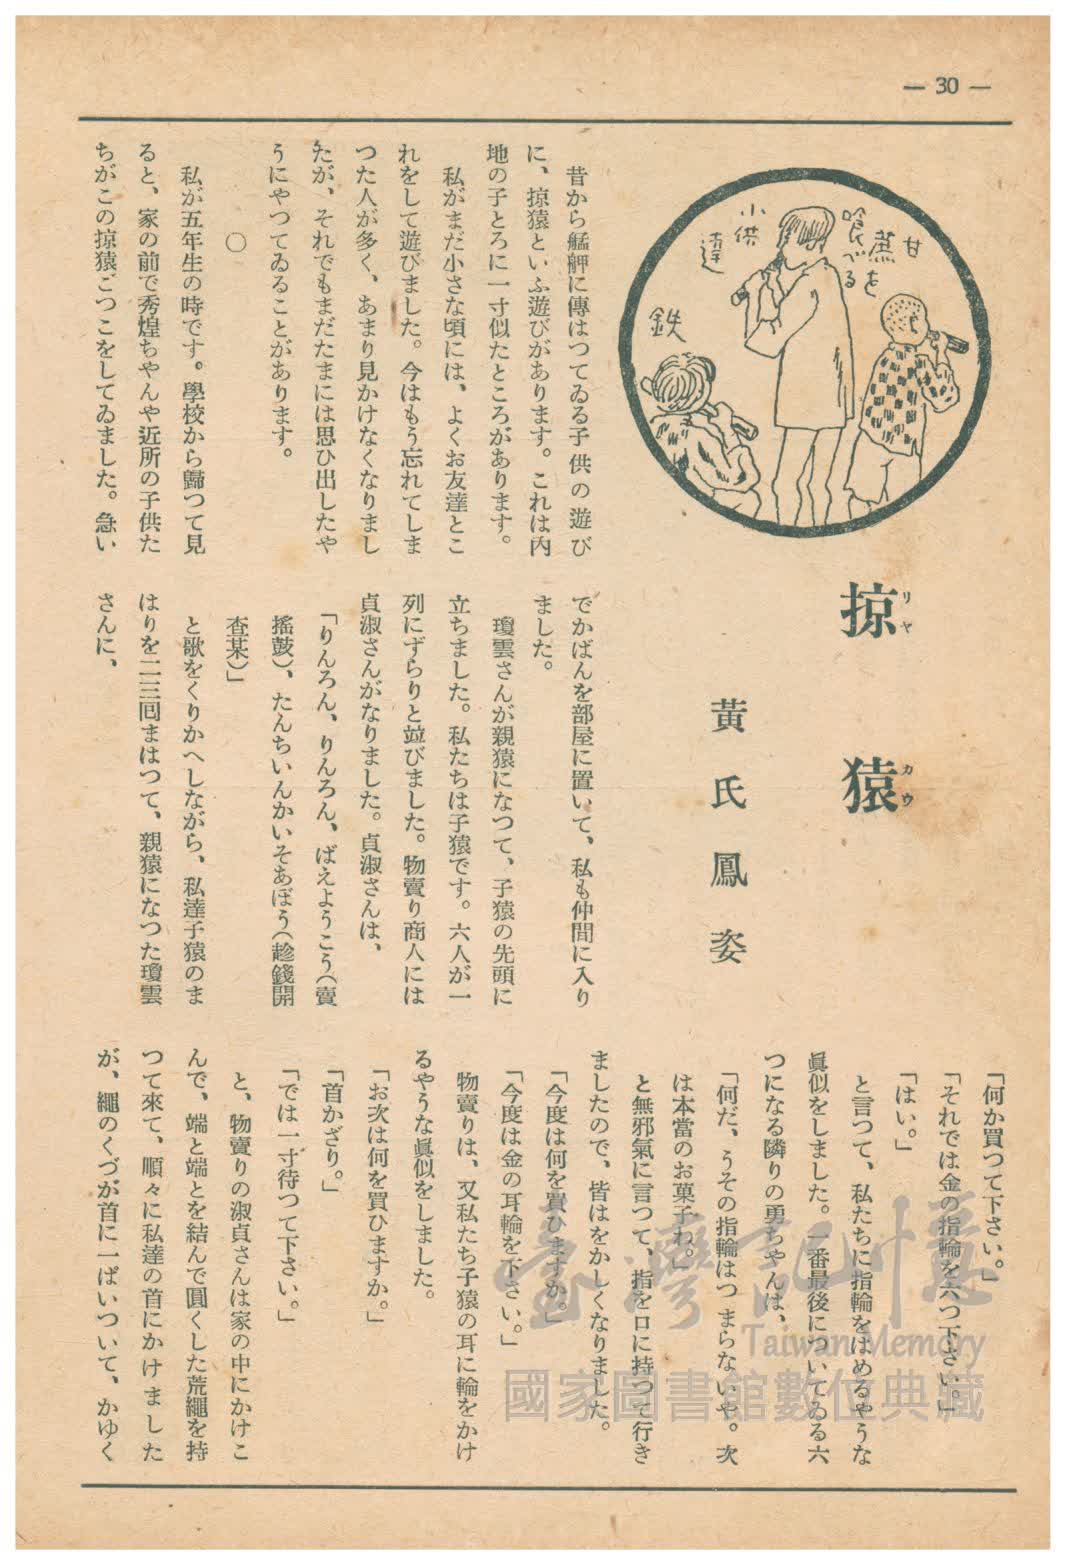 — 30 —
甘蔗を
喰べる
小供
達
鉄
掠猿
リヤカウ
黃氏鳳姿
昔から艋舺に傳はつてゐる子供の遊び
に、掠猿といふ遊びがあります。これは內
地の子とろに一寸似たところがあります。
私がまだ小さな頃には、よくお友達とこ
れをして遊びました。今はもう忘れてしま
つた人が多く、あまり見かけなくなりまし
たが、それでもまだたまには思ひ出したや
うにやつてゐることがあります。
○
私が五年生の時です。學校から歸つて見
ると、家の前で秀煌ちやんや近所の子供た
ちがこの掠猿ごつこをしてゐました。急い
でかばんを部屋に置いて、私も仲間に入り
ました。
瓊雲さんが親猿になつて、子猿の先頭に
立ちました。私たちは子猿です。六人が一
列にずらりと竝びました。物賣り商人には
貞淑さんがなりました。貞淑さんは、
「りんろん、りんろん、ばえようこう（賣
搖鼓）、たんちいんかいそあぼう（趁錢開
査某）」
と歌をくりかへしながら、私達子猿のま
はりを二三囘まはつて、親猿になつた瓊雲
さんに、
「何か買つて下さい。」
「それでは金の指輪を六つ下さい。」
「はい。」
と言つて、私たちに指輪をはめるやうな
眞似をしました。一番最後についてゐる六
つになる隣りの勇ちやんは、
「何だ、うその指輪はつまらないや。次
は本當のお菓子ね。」
と無邪氣に言つて、指を口に持つて行き
ましたので、皆はをかしくなりました。
「今度は何を買ひますか。」
「今度は金の耳輪を下さい。」
物賣りは、又私たち子猿の耳に輪をかけ
るやうな眞似をしました。
「お次は何を買ひますか。」
「首かざり。」
「では一寸待つて下さい。」
と、物賣りの淑貞さんは家の中にかけこ
んで、端と端とを結んで圓くした荒繩を持
つて來て、順々に私達の首にかけました
が、繩のくづが首に一ぱいついて、かゆく
臺灣記憶
Taiwan Memory
國家圖書館數位典藏